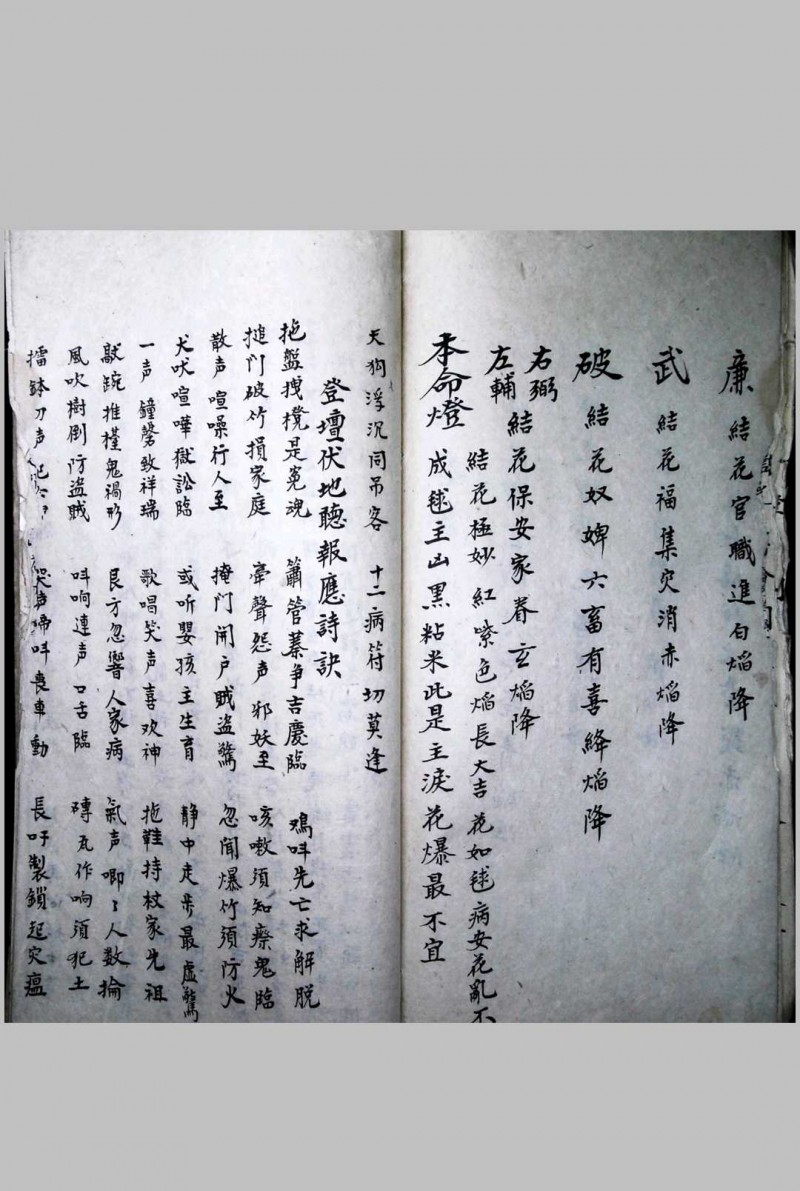 廉 結花官職進白熖降
武 結花福集灾消赤熖降
破 結花奴婢六畜有喜絳熖降
右弼
左輔 結花保安家眷玄熖降
本命燈 結花極妙紅紫色熖長大吉 花如毬病安花亂不
成毬主凶黑粘米此是主淚花爆最不宜
天狗浮沉同吊客 十二病符切莫逢
登壇伏地聽報應詩訣
拖盤拽櫈是冤魂 簫管蓁争吉慶臨 鴉呌先亡求解脱
搥門破竹損家庭 牽聲怨声邪妖至 咳嗽須知瘵鬼臨
散声喧噪行人至 掩門開户賊盗驚 忽聞爆竹須防火
犬吠喧嘩獄訟臨 或听嬰孩主生育 静中走步最虚驚
一声鐘磬致祥瑞 歌唱笑声喜欢神 拖鞋持杖家先祖
敲踠推槿鬼禍形 艮方忽響人家病 氣声唧〻人数掄
風吹樹倒防盗賊 呌响連声口舌臨 磚瓦作响須犯土
擂鉢刀声 哭声啼呌喪車動 長吁製鎖起灾瘟